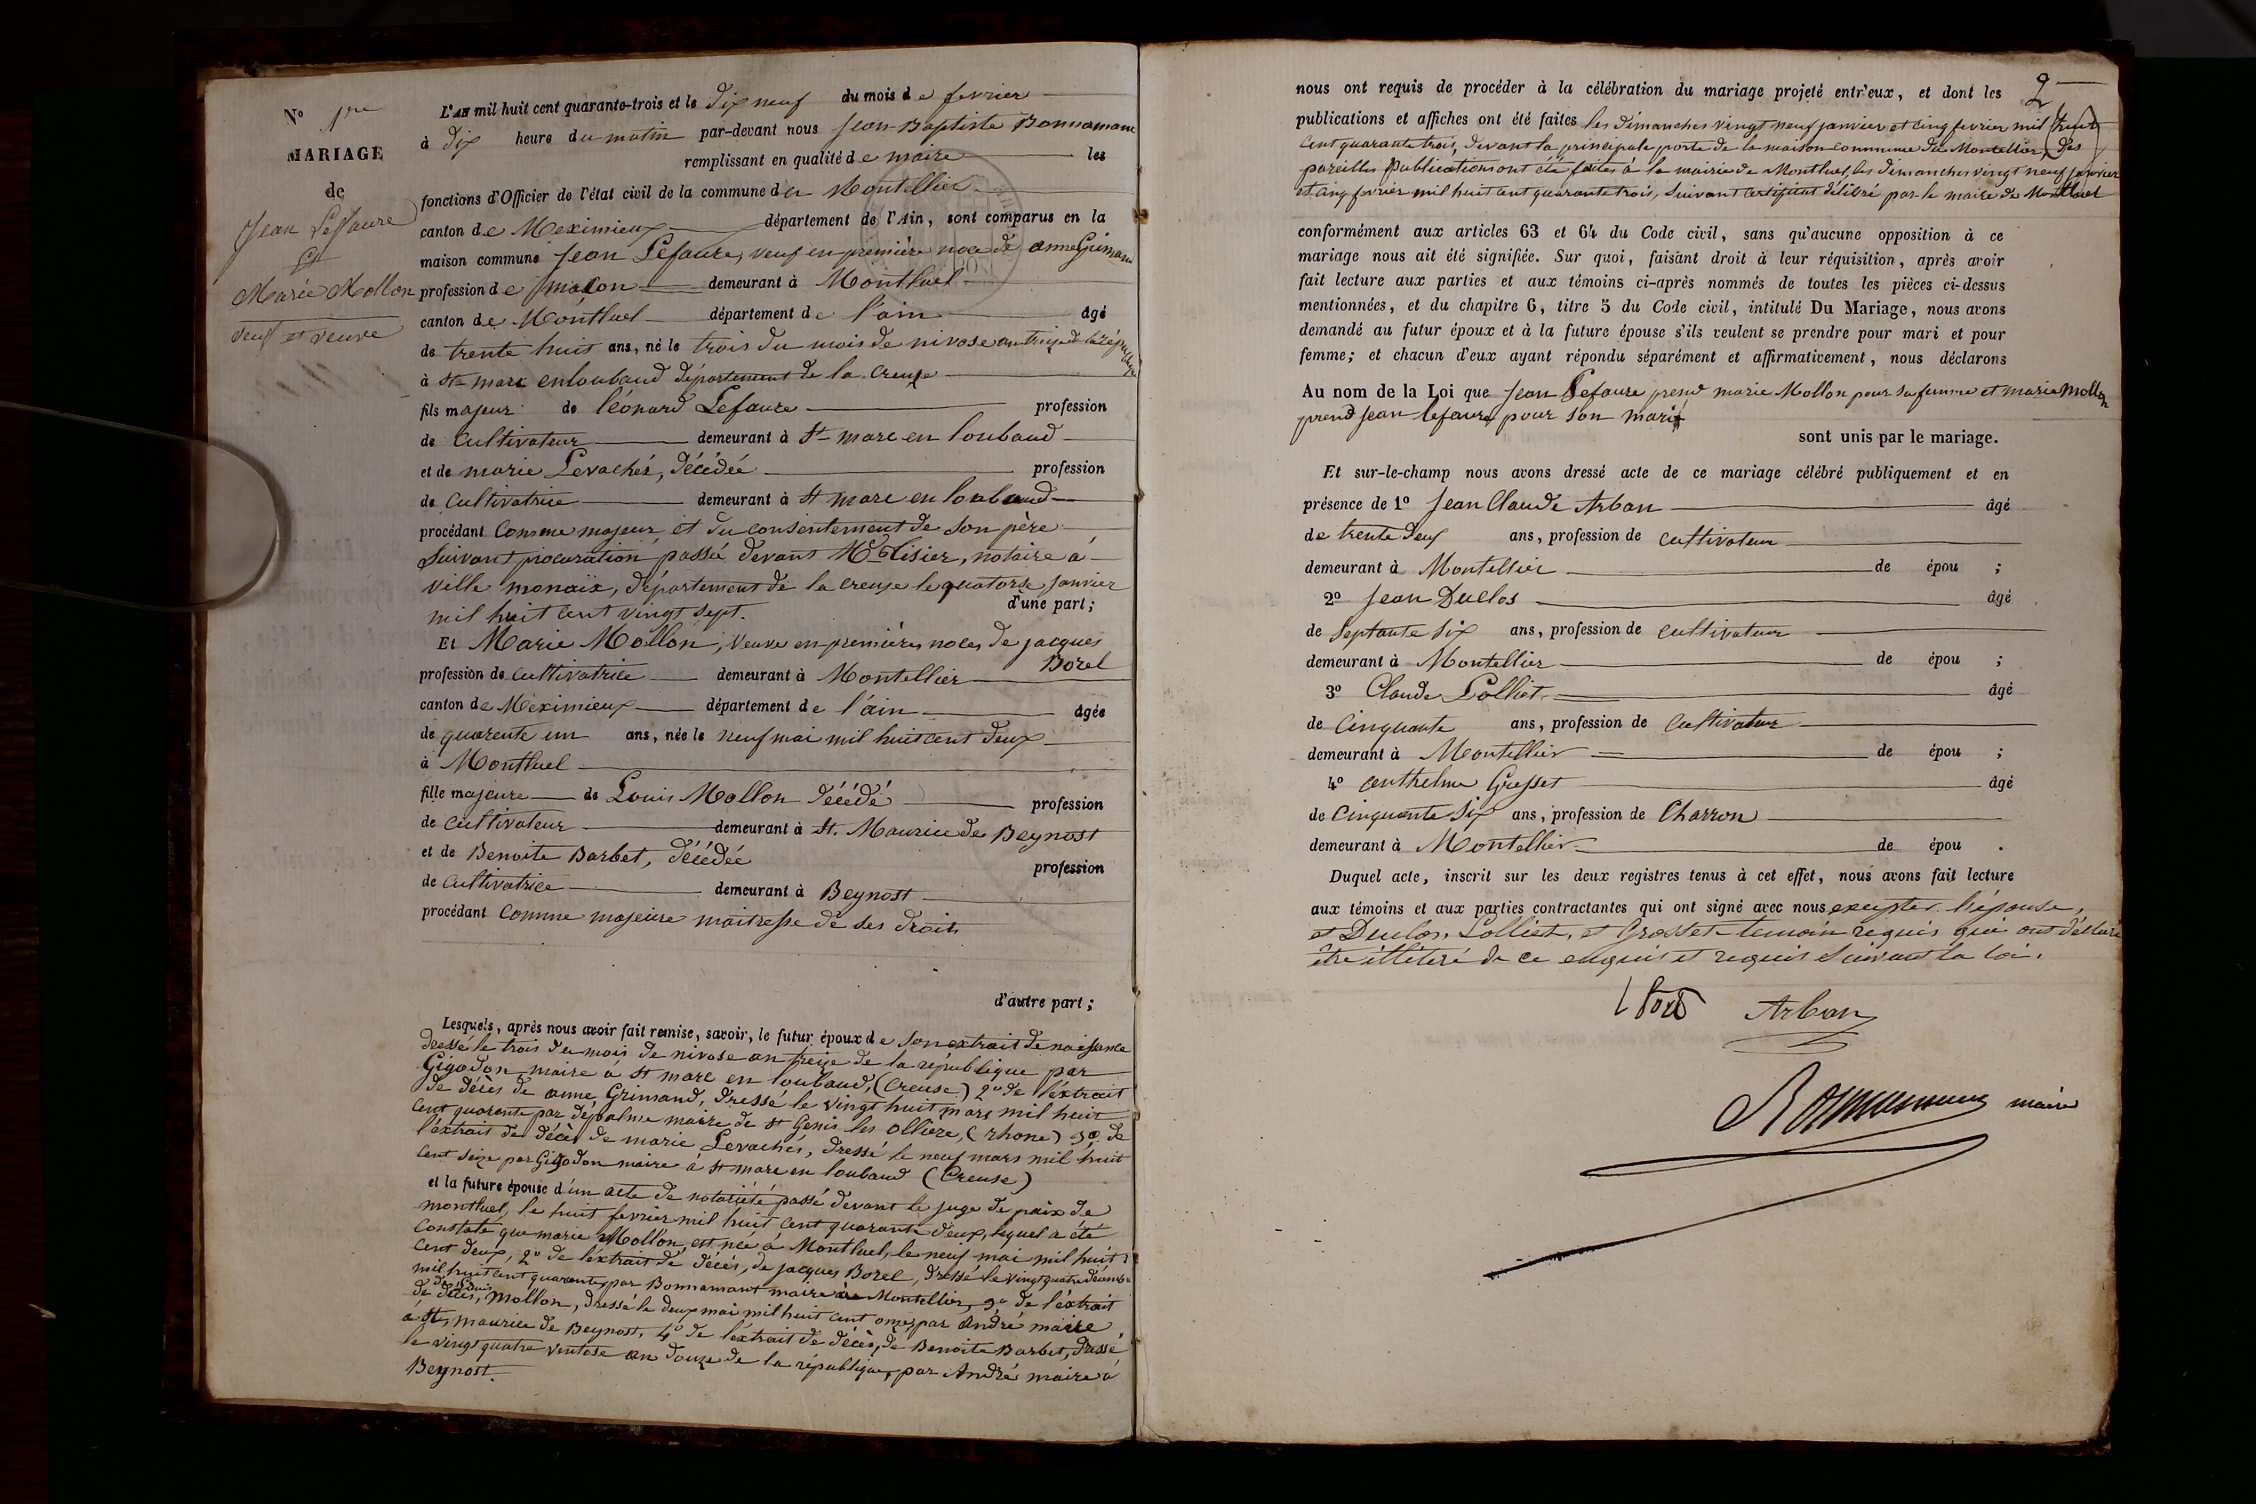 N° 1re
MARIAGE
de
Jean Lefaure
Et
Marie Mollon
veuf et veuve
L'AN mil huit cent quarante-trois et le dix neuf du mois de fevrier
à dix heure du matin par-devant nous Jean-Baptiste Bonnamour
remplissant en qualité de maire les
fonctions d'Officier de l'état civil de la commune de Montellier
canton de Meximieux département de l'Ain, sont comparus en la
maison commune Jean Lefaure, veuf en première noce de anne Grimaud
profession de maçon demeurant à Montluel
canton de Montluel département de l'ain âgé
de trente huit ans, né le trois du mois de nivose an treize de la république
à St marc enloubaud département de la Creuse
fils majeur de léonard Lefaure profession
de cultivateur demeurant à St marc en loubaud
et de marie Levachés, décédée profession
de Cultivatrice demeurant à St marc en loubaud
procédant Comme majeur et du consentement de son père
Suivant procuration passée devant Me Glisier, notaire à
ville monaix, département de la creuse le quatorze janvier
mil huit cent vingt sept. d'une part;
Et Marie Mollon, veuve en premières noces de jacques
Borel
profession de cultivatrice demeurant à Montellier
canton de Méximieux département de l'ain âgée
de quarente un ans, née le neuf mai mil huit cent deux
à Montluel
fille majeure de Louis Mollon décédé profession
de cultivateur demeurant à St. Maurice de Beynost
et de Benoite Barbet, décédée profession
de cultivatrice demeurant à Beynost
procédant Comme majeure maitresse de ses droits
d'autre part;
Lesquels, après nous avoir fait remise, savoir, le futur époux de Son extrait de naissance
dressé le trois du mois de nivose an treize de la république par
Gigodon maire à St marc en loubaud, (Creuse) 2° de l'éxtrait
de décès de anne Grimaud, dressé le vingt huit mars mil huit
cent quarante par maire de St Genis les ollière, (rhone) 3° de
l'éxtrait de décès de marie Levachés, dressé le neuf mars mil huit
cent seize par Gigodon maire à St marc en loubaud (Creuse)
et la future épouse d'un acte de notoriété passé devant le juge de paix de
montluel, le huit fevrier mil huit cent quarante deux, lequel a été
constaté que marie Mollon est née à Montluel, le neuf mai mil huit
cent deux, 2° de l'éxtrait de décès, de jacques Borel, dressé le vingt quatre décembre
mil huit cent quarante, par Bonnamour maire de Montellier, 3° de l'éxtrait
de décès, de Louis Mollon, dressé le deux mai mil huit cent onze, par andré maire
à St maurice de Beynost, 4° de l'éxtrait de décès, de Benoite Barbet, dressé
le vingt quatre ventose an douze de la république, par André maire à
Beynost.
2
nous ont requis de procéder à la célébration du mariage projeté entr'eux, et dont les
publications et affiches ont été faites les dimanches vingt neuf janvier et cinq fevrier mil huit
cent quarante trois, devant la principale porte de la maison commune du Montellier, des
pareilles publications ont été faites à la mairie de Montluel, les dimanches vingt neuf janvier
et cinq fevrier mil huit cent quarante trois, suivant certificat délivré par le maire de Montluel
conformément aux articles 63 et 64 du Code civil, sans qu'aucune opposition à ce
mariage nous ait été signifiée. Sur quoi, faisant droit à leur réquisition, après avoir
fait lecture aux parties et aux témoins ci-après nommés de toutes les pièces ci-dessus
mentionnées, et du chapitre 6, titre 5 du Code civil, intitulé Du Mariage, nous avons
demandé au futur époux et à la future épouse s'ils veulent se prendre pour mari et pour
femme; et chacun d'eux ayant répondu séparément et affirmativement, nous déclarons
Au nom de la Loi que Jean Lefaure prend marie Mollon pour sa femme et marie Mollon
prend Jean lefaure pour son mari
sont unis par le mariage.
Et sur-le-champ nous avons dressé acte de ce mariage célébré publiquement et en
présence de 1° Jean Claude Arban âgé
de trente deux ans, profession de cultivateur
demeurant à Montellier de épou ;
2° Jean Duclos âgé
de Septante six ans, profession de cultivateur
demeurant à Montellier de épou ;
3° Claude Lolliet âgé
de Cinquante ans, profession de Cultivateur
demeurant à Montellier de épou ;
4° anthelme Grosset âgé
de Cinquante six ans, profession de Charron
demeurant à Montellier de épou .
Duquel acte, inscrit sur les deux registres tenus à cet effet, nous avons fait lecture
aux témoins et aux parties contractantes qui ont signé avec nous, excepter l'épouse,
et Duclos, Lolliet, et Grosset temoin requis qui ont déclaré
être illitéré de ce enquis et requis suivant la loi.
Arban
Bonnamour maire